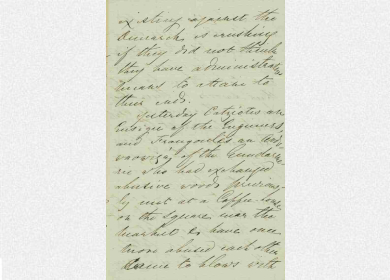 existing against the
Monarch is crushing
if they did not think
they have administrative
means to attain to
their ends.
Yesterday Catziotis an
Ensign of the Engineers,
and Frangoulis an
of the Gendarme-
rie who had exchanged
abusive words previous-
ly met at a Coffee house
on the Square near the
Market & have once
more abused each other
came to blows with